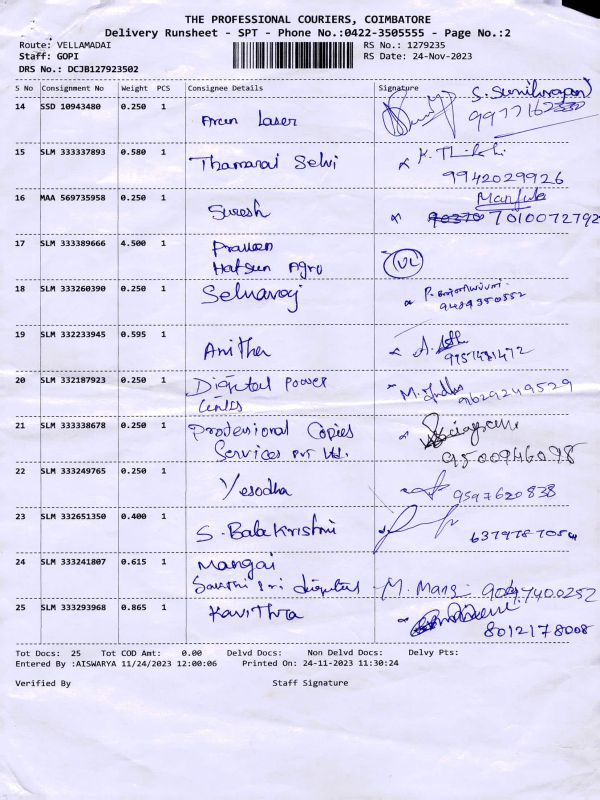 THE PROFESSIONAL COURIERS, COIMBATORE
Delivery Runsheet - SPT - Phone No.:0422-3505555 - Page No.:2
Route: VELLAMADAI RS No.: 1279235
Staff: GOPI RS Date: 24-Nov-2023
DRS No.: DCJB127923502
S No Consignment No Weight PCS Consignee Details Signature
14 SSD 10943480 0.250 1 Arun Laser
15 SLM 333337893 0.580 1 Thamarai Selvi
9942029926
16 MAA 569735958 0.250 1 Suresh Manjula
7010072792
17 SLM 333389666 4.500 1 Praveen
Hatsun Agro VL
18 SLM 333260390 0.250 1 Selvaraj
9489350552
19 SLM 332233945 0.595 1 Anitha
20 SLM 332187923 0.250 1 Digital Power
9629249529
21 SLM 333338678 0.250 1 Professional Copies
Services Pvt Ltd.
9500946098
22 SLM 333249765 0.250 1 Yesodha 9597620838
23 SLM 332651350 0.400 1 S. BalaKrishni
24 SLM 333241807 0.615 1 Mangai
25 SLM 333293968 0.865 1 Kavithra
8012178008
Tot Docs: 25 Tot COD Amt: 0.00 Delvd Docs: Non Delvd Docs: Delvy Pts:
Entered By :AISWARYA 11/24/2023 12:00:06 Printed On: 24-11-2023 11:30:24
Verified By Staff Signature